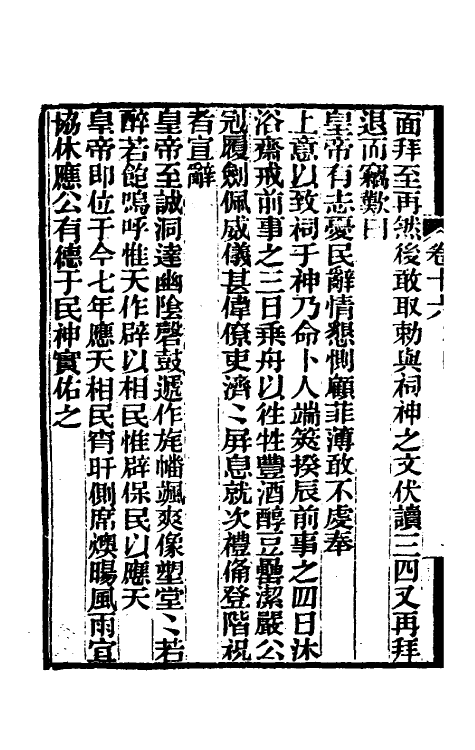 面拜至再然後敢取勅與祠神之文伏讀三四又再拜
退而竊歎曰
皇帝有志憂民辭情懇惻顧菲薄敢不虔奉
上意以致祠于神乃命卜人端筴揆辰前事之四日沐
浴齋戒前事之三日乘舟以徃牲豐酒醇豆罍潔嚴公
冠履劍佩威儀甚偉僚吏濟〻屏息就次禮俻登階祝
者宣辭
皇帝至誠洞達幽陰磬鼓遞作旄幡颯爽像塑堂〻若
醉若飽嗚呼惟天作辟以相民惟辟保民以應天
皇帝即位于今七年應天相民宵旰側席燠暘風雨宜
協休應公有德于民神實佑之
卷十六